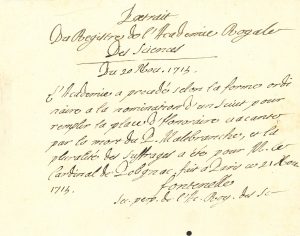 Extrait
Du Registre de l'Academie Royale
Des Sciences
Du 20 Nov. 1715.
L'Academie a procedé selon la forme ordi
naire a la nomination d'un sujet pour
remplir la place d'honoraire vacante
par la mort du P. Malebranche, et la
pluralité des suffrages a été pour M. le
Cardinal de Polignac, fait a Paris ce 21 Nov.
1715.
Fontenelle
Sec. perp. de l'Ac. Roy. des Sc.